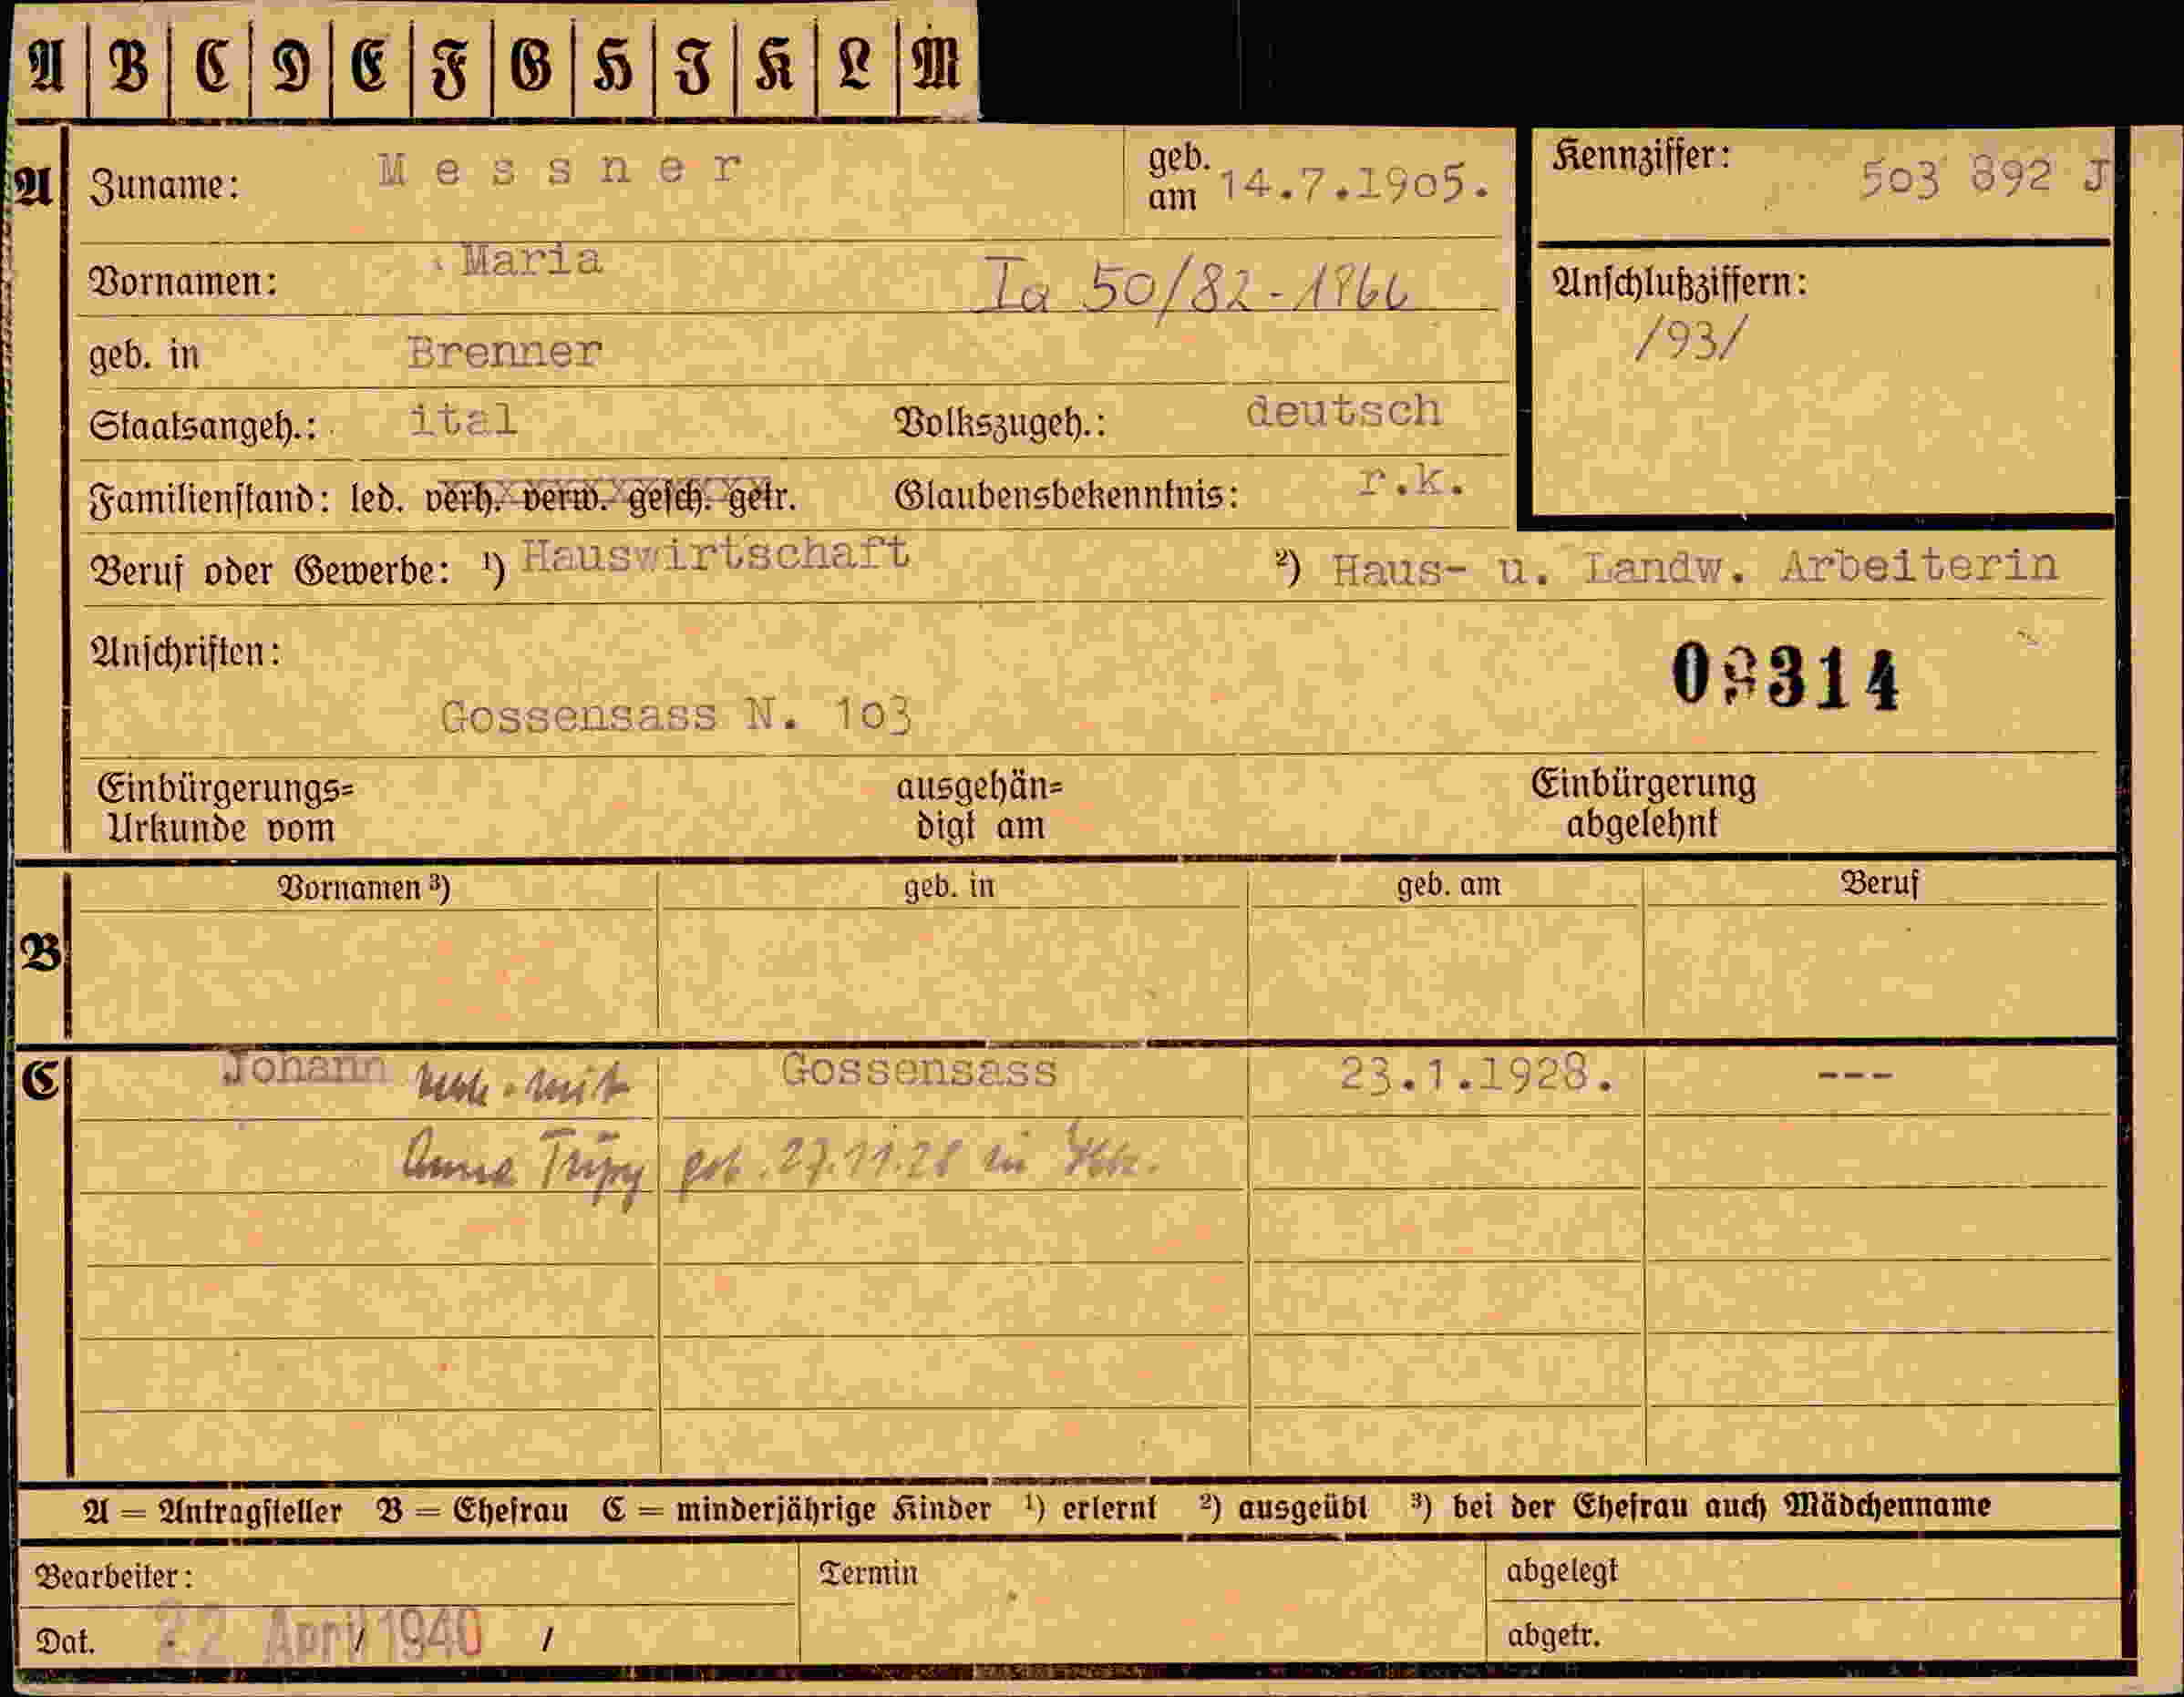 A B C D E F G H I K L M
A Zuname: Messner geb. am 14.7.1905. Kennziffer: 503 892 J
Vornamen: Maria Ia 50/82-1966 Anschlußziffern:
/93/
geb. in Brenner
Staatsangeh.: ital Volkszugeh.: deutsch
Familienstand: led. verh. verw. gesch. getr. Glaubensbekenntnis: r.k.
Beruf oder Gewerbe: ¹) Hauswirtschaft ²) Haus- u. Landw. Arbeiterin
Anschriften:
Gossensass N. 103
Einbürgerungs= ausgehän= Einbürgerung
Urkunde vom digt am abgelehnt
Vornamen ³) geb. in geb. am Beruf
B
C Johann mit Gossensass 23.1.1928. ---
Anna geb. 27.11.28 in
A = Antragsteller B = Ehefrau C = minderjährige Kinder ¹) erlernt ²) ausgeübt ³) bei der Ehefrau auch Mädchenname
Bearbeiter: Termin abgelegt
Dat. 22 April 1940 / abgetr.